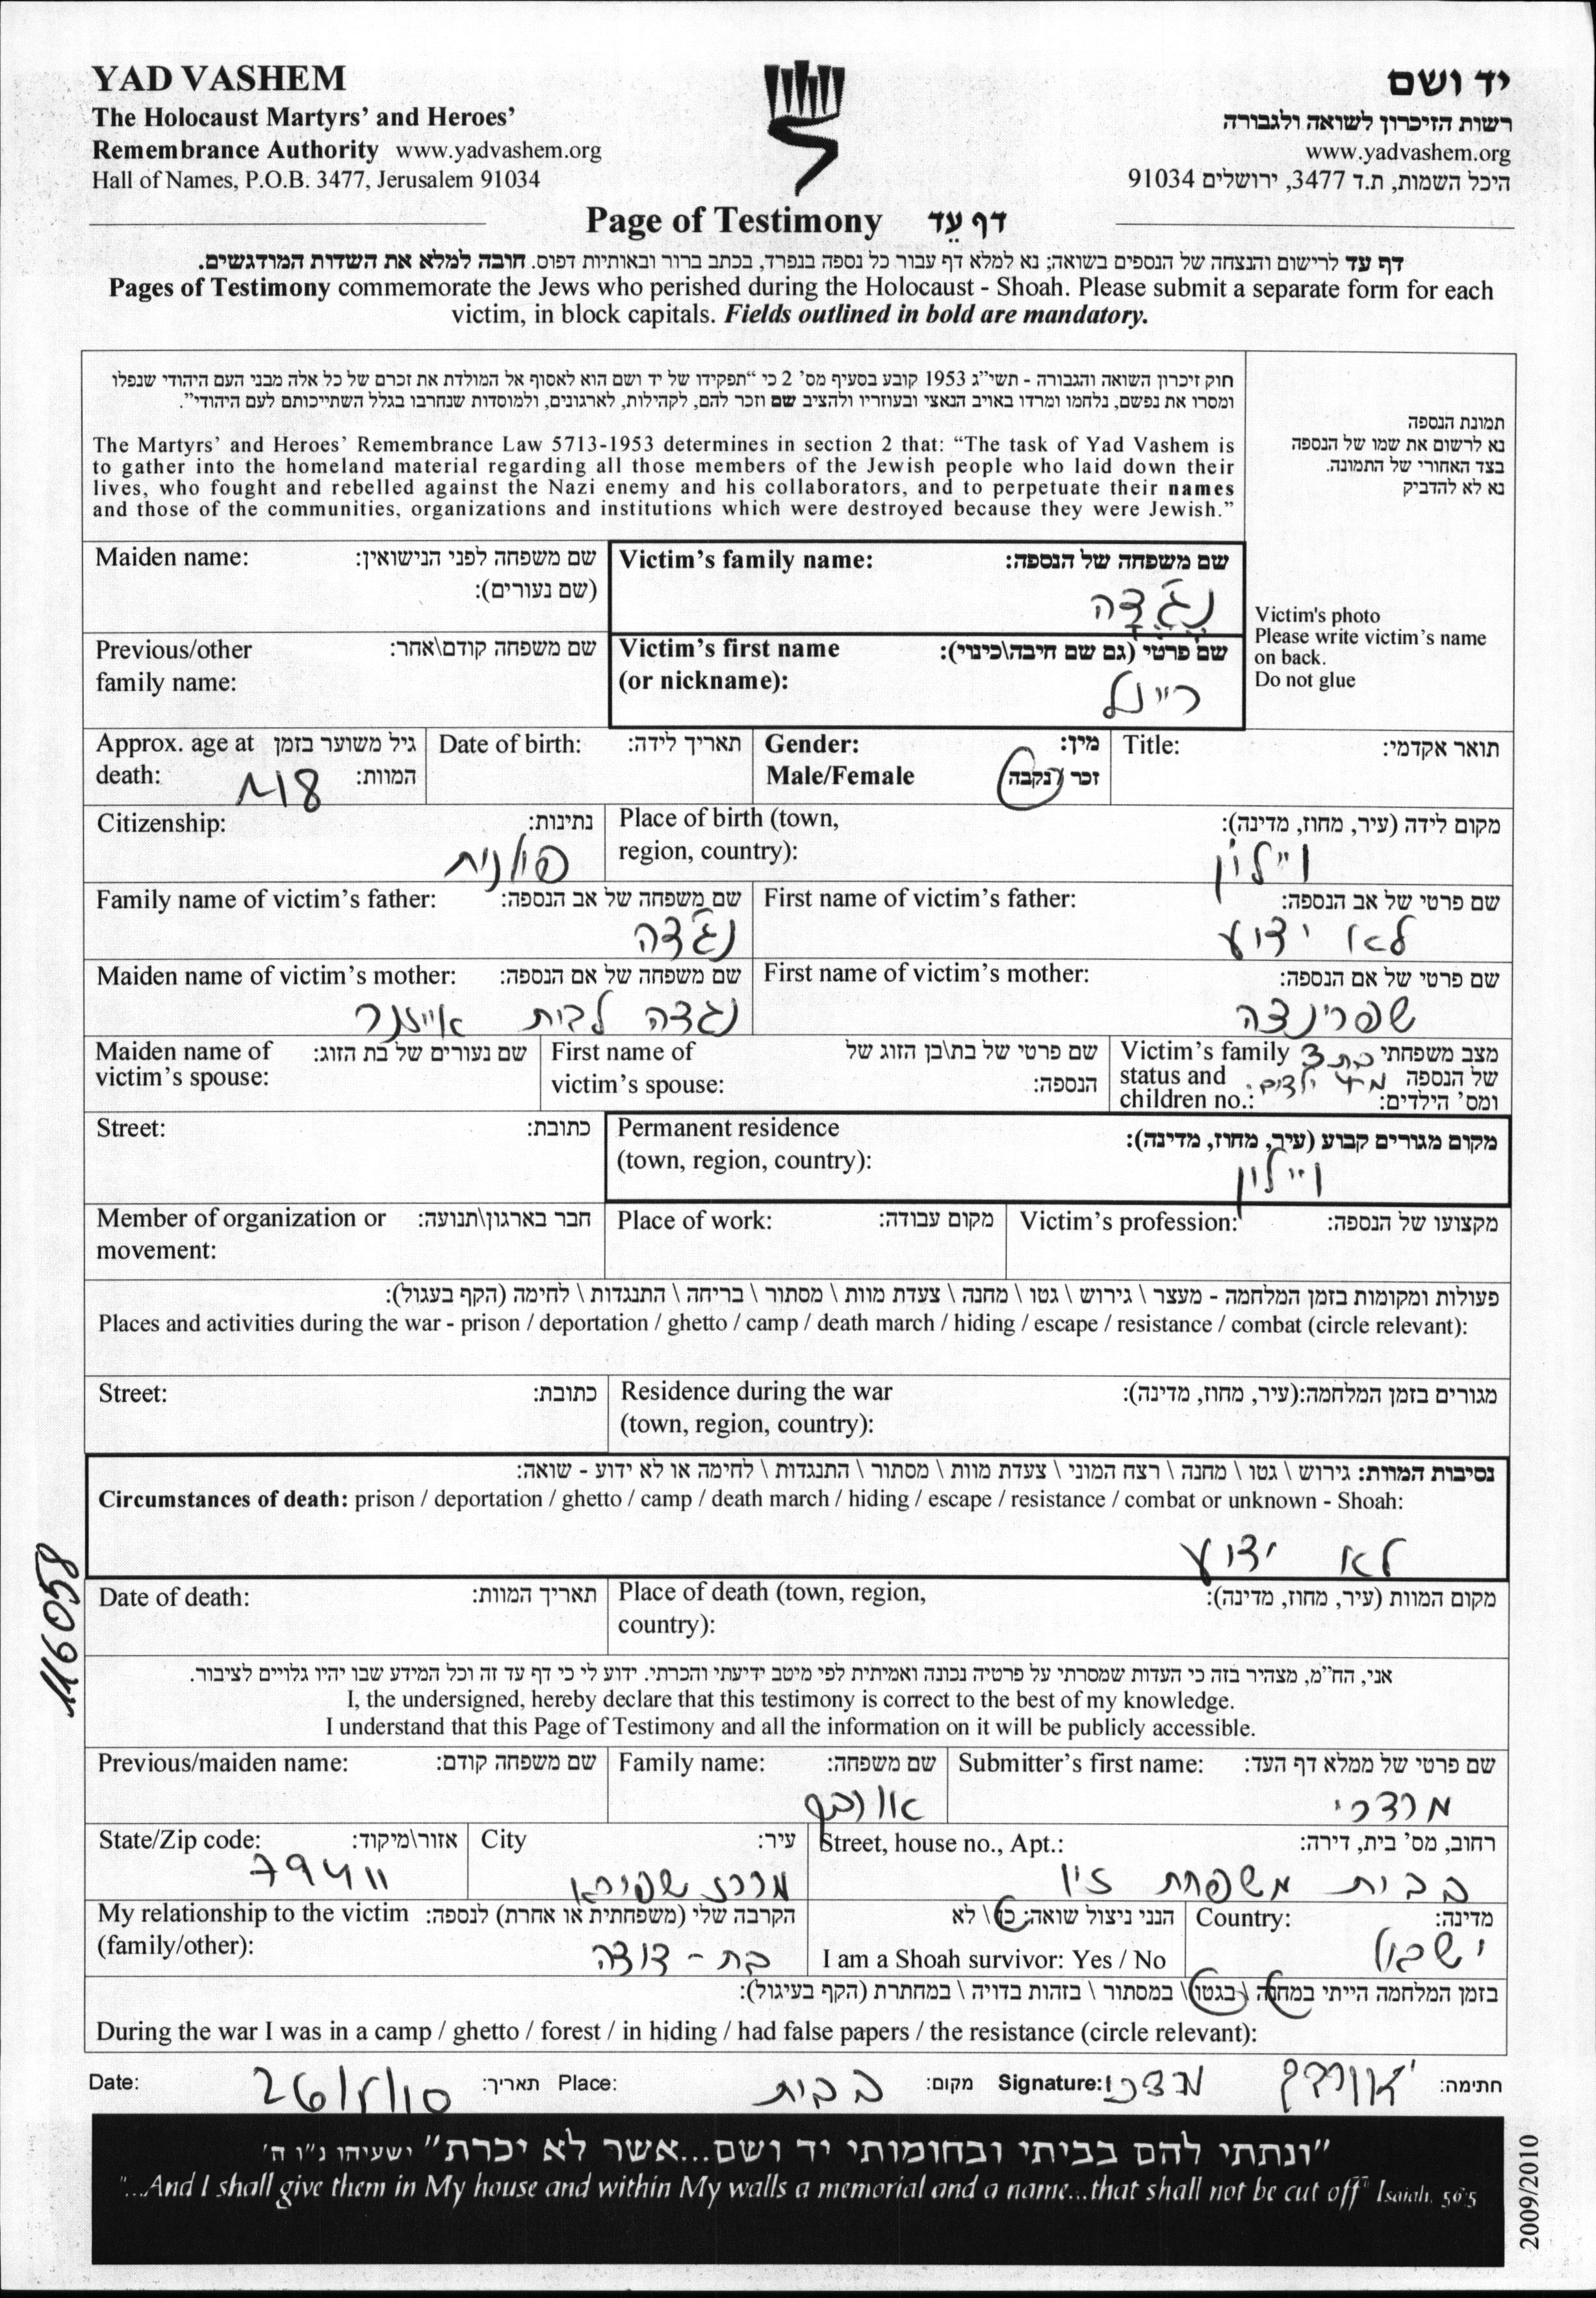 YAD VASHEM
The Holocaust Martyrs' and Heroes'
Remembrance Authority www.yadvashem.org
Hall of Names, P.O.B. 3477, Jerusalem 91034
יד ושם
רשות הזיכרון לשואה ולגבורה
www.yadvashem.org
היכל השמות, ת.ד 3477, ירושלים 91034
Page of Testimony דף עֵד
דף עד לרישום והנצחה של הנספים בשואה; נא למלא דף עבור כל נספה בנפרד, בכתב ברור ובאותיות דפוס. חובה למלא את השדות המודגשים.
Pages of Testimony commemorate the Jews who perished during the Holocaust - Shoah. Please submit a separate form for each
victim, in block capitals. Fields outlined in bold are mandatory.
חוק זיכרון השואה והגבורה - תשי"ג 1953 קובע בסעיף מס' 2 כי "תפקידו של יד ושם הוא לאסוף אל המולדת את זכרם של כל אלה מבני העם היהודי שנפלו
ומסרו את נפשם, נלחמו ומרדו באויב הנאצי ובעוזריו ולהציב שם וזכר להם, לקהילות, לארגונים, ולמוסדות שנחרבו בגלל השתייכותם לעם היהודי".
The Martyrs' and Heroes' Remembrance Law 5713-1953 determines in section 2 that: "The task of Yad Vashem is
to gather into the homeland material regarding all those members of the Jewish people who laid down their
lives, who fought and rebelled against the Nazi enemy and his collaborators, and to perpetuate their names
and those of the communities, organizations and institutions which were destroyed because they were Jewish."
תמונת הנספה
נא לרשום את שמו של הנספה
בצד האחורי של התמונה.
נא לא להדביק
Victim's photo
Please write victim's name
on back.
Do not glue
Maiden name: שם משפחה לפני הנישואין:
(שם נעורים):
Victim's family name: שם משפחה של הנספה:
נג'דה
Previous/other שם משפחה קודם\אחר:
family name:
Victim's first name שם פרטי (גם שם חיבה\כינוי):
(or nickname):
ריינל
Approx. age at גיל משוער בזמן
death: המוות:
18
Date of birth: תאריך לידה:
Gender: מין:
Male/Female זכר \ נקבה
Title: תואר אקדמי:
Citizenship: נתינות:
פולנית
Place of birth (town, מקום לידה (עיר, מחוז, מדינה):
region, country):
ויילון
Family name of victim's father: שם משפחה של אב הנספה:
נג'דה
First name of victim's father: שם פרטי של אב הנספה:
לא ידוע
Maiden name of victim's mother: שם משפחה של אם הנספה:
נגדה לבית אייזנר
First name of victim's mother: שם פרטי של אם הנספה:
שפרינצה
Maiden name of שם נעורים של בת הזוג:
victim's spouse:
First name of שם פרטי של בת\בן הזוג של
victim's spouse: הנספה:
Victim's family מצב משפחתי
status and של הנספה
children no.: ומס' הילדים:
ילדים.
Street: כתובת:
Permanent residence מקום מגורים קבוע (עיר, מחוז, מדינה):
(town, region, country):
ויילון
Member of organization or חבר בארגון\תנועה:
movement:
Place of work: מקום עבודה:
Victim's profession: מקצועו של הנספה:
פעולות ומקומות בזמן המלחמה - מעצר \ גירוש \ גטו \ מחנה \ צעדת מוות \ מסתור \ בריחה \ התנגדות \ לחימה (הקף בעגול):
Places and activities during the war - prison / deportation / ghetto / camp / death march / hiding / escape / resistance / combat (circle relevant):
Street: כתובת:
Residence during the war מגורים בזמן המלחמה:(עיר, מחוז, מדינה):
(town, region, country):
נסיבות המוות: גירוש \ גטו \ מחנה \ רצח המוני \ צעדת מוות \ מסתור \ התנגדות \ לחימה או לא ידוע - שואה:
Circumstances of death: prison / deportation / ghetto / camp / death march / hiding / escape / resistance / combat or unknown - Shoah:
לא ידוע
Date of death: תאריך המוות:
Place of death (town, region, מקום המוות (עיר, מחוז, מדינה):
country):
116058
אני, הח"מ, מצהיר בזה כי העדות שמסרתי על פרטיה נכונה ואמיתית לפי מיטב ידיעתי והכרתי. ידוע לי כי דף עד זה וכל המידע שבו יהיו גלויים לציבור.
I, the undersigned, hereby declare that this testimony is correct to the best of my knowledge.
I understand that this Page of Testimony and all the information on it will be publicly accessible.
Previous/maiden name: שם משפחה קודם:
Family name: שם משפחה:
אורבך
Submitter's first name: שם פרטי של ממלא דף העד:
מרדכי
State/Zip code: אזור\מיקוד:
79411
City עיר:
מרכז שפירא
Street, house no., Apt.: רחוב, מס' בית, דירה:
בבית משפחת זיו
My relationship to the victim הקרבה שלי (משפחתית או אחרת) לנספה:
(family/other):
בת - דודה
הנני ניצול שואה: כן \ לא
I am a Shoah survivor: Yes / No
Country: מדינה:
ישראל
בזמן המלחמה הייתי במחנה \ בגטו \ במסתור \ בזהות בדויה \ במחתרת (הקף בעיגול):
During the war I was in a camp / ghetto / forest / in hiding / had false papers / the resistance (circle relevant):
Date: תאריך: Place: בבית מקום: Signature: מרדכי אורבך חתימה:
"ונתתי להם בביתי ובחומותי יד ושם...אשר לא יכרת" ישעיהו נ"ו ה'
"...And I shall give them in My house and within My walls a memorial and a name...that shall not be cut off" Isaiah. 56:5
2009/2010